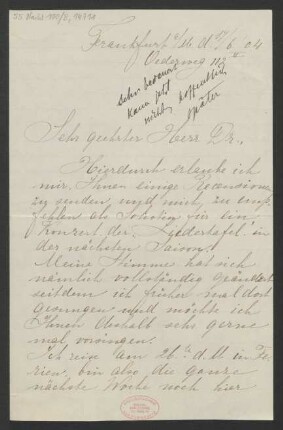 Frankfurt a/M. d. 17/6 04
Oederweg 112 II
Sehr bedauere
kann jetzt
nicht, hoffentlich
später
Sehr geehrter Herr Dr.,
Hierdurch erlaube ich
mir, Ihnen einige Recensionen
zu senden, und mich zu emp-
fehlen als Solistin für ein
Konzert der "Liedertafel" in
der nächsten Saison.
Meine Stimme hat sich
nämlich vollständig geändert
seitdem ich früher mal dort
gesungen und möchte ich
Ihnen deshalb sehr gerne
mal vorsingen.
Ich reise am 26ten d. M in Fe-
rien, bin also die ganze
nächste Woche noch hier